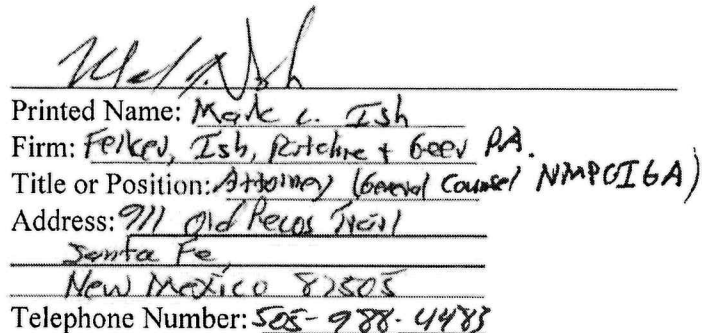 Printed Name: Mark C. Ish
Firm: Felker, Ish, Ritchie + Geer P.A.
Title or Position: Attorney (General Counsel NMPCIGA)
Address: 911 Old Pecos Trail
Santa Fe
New Mexico 87505
Telephone Number: 505-988-4483